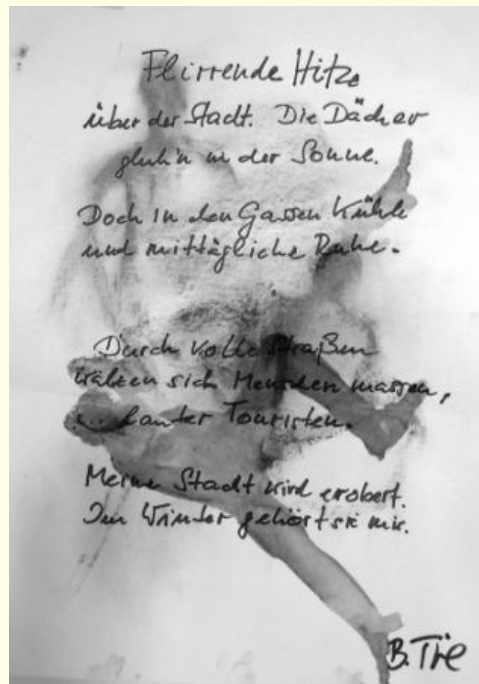 Flirrende Hitze
über der Stadt. Die Dächer
glüh'n in der Sonne.
Doch in den Gassen Kühle
und mittägliche Ruhe.
Durch volle Straßen
wälzen sich Menschenmassen,
lauter Touristen.
Meine Stadt wird erobert.
Im Winter gehört sie mir.